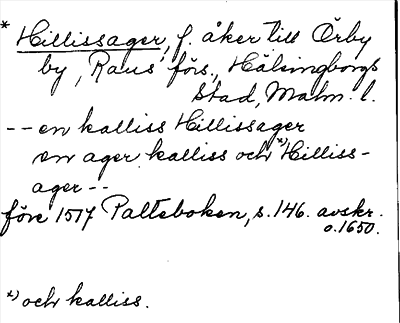 * Hillissager, f. åker till Örby
by, Raus förs., Hälsingborgs
stad, Malm. l.
-- en kalliss Hillissager
en ager kalliss och x) Hilliss-
ager --
före 1517 Palteboken, s. 146. avskr.
o. 1650.
x) och kalliss.